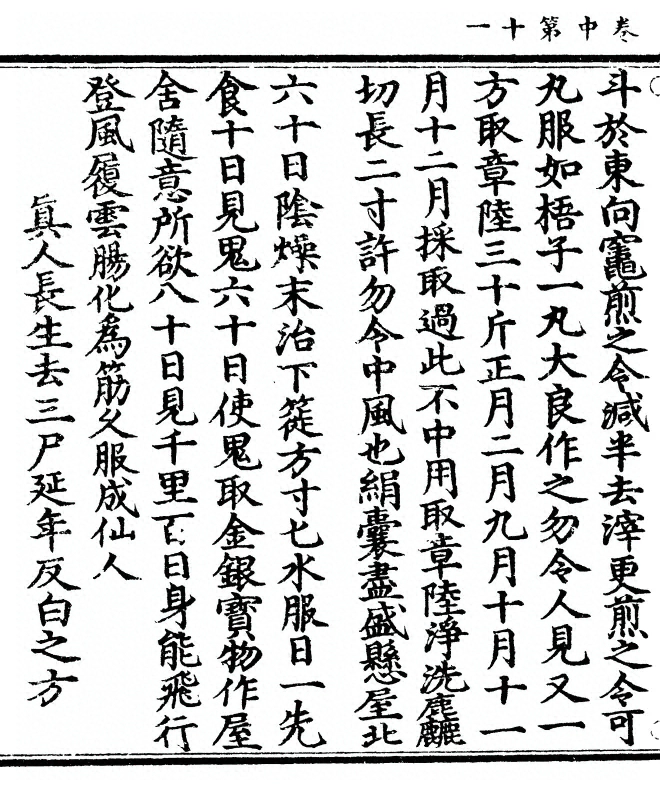 卷中第十一
斗於東向竈煎之令減半去滓更煎之令可
丸服如梧子一丸大良作之勿令人見又一
方取章陸三十斤正月二月九月十月十一
月十二月採取過此不中用取章陸淨洗麤
切長二寸許勿令中風也絹囊盡盛懸屋北
六十日陰燥末治下簁方寸匕水服日一先
食十日見鬼六十日使鬼取金銀寶物作屋
舍隨意所欲八十日見千里百日身能飛行
登風履雲腸化爲筋久服成仙人
眞人長生去三尸延年反白之方